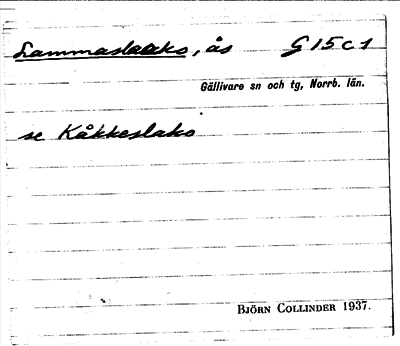 Lammaslaako, ås G 15 c 1
Gällivare sn och tg, Norrb. län.
se Kåkkeslako
BJÖRN COLLINDER 1937.